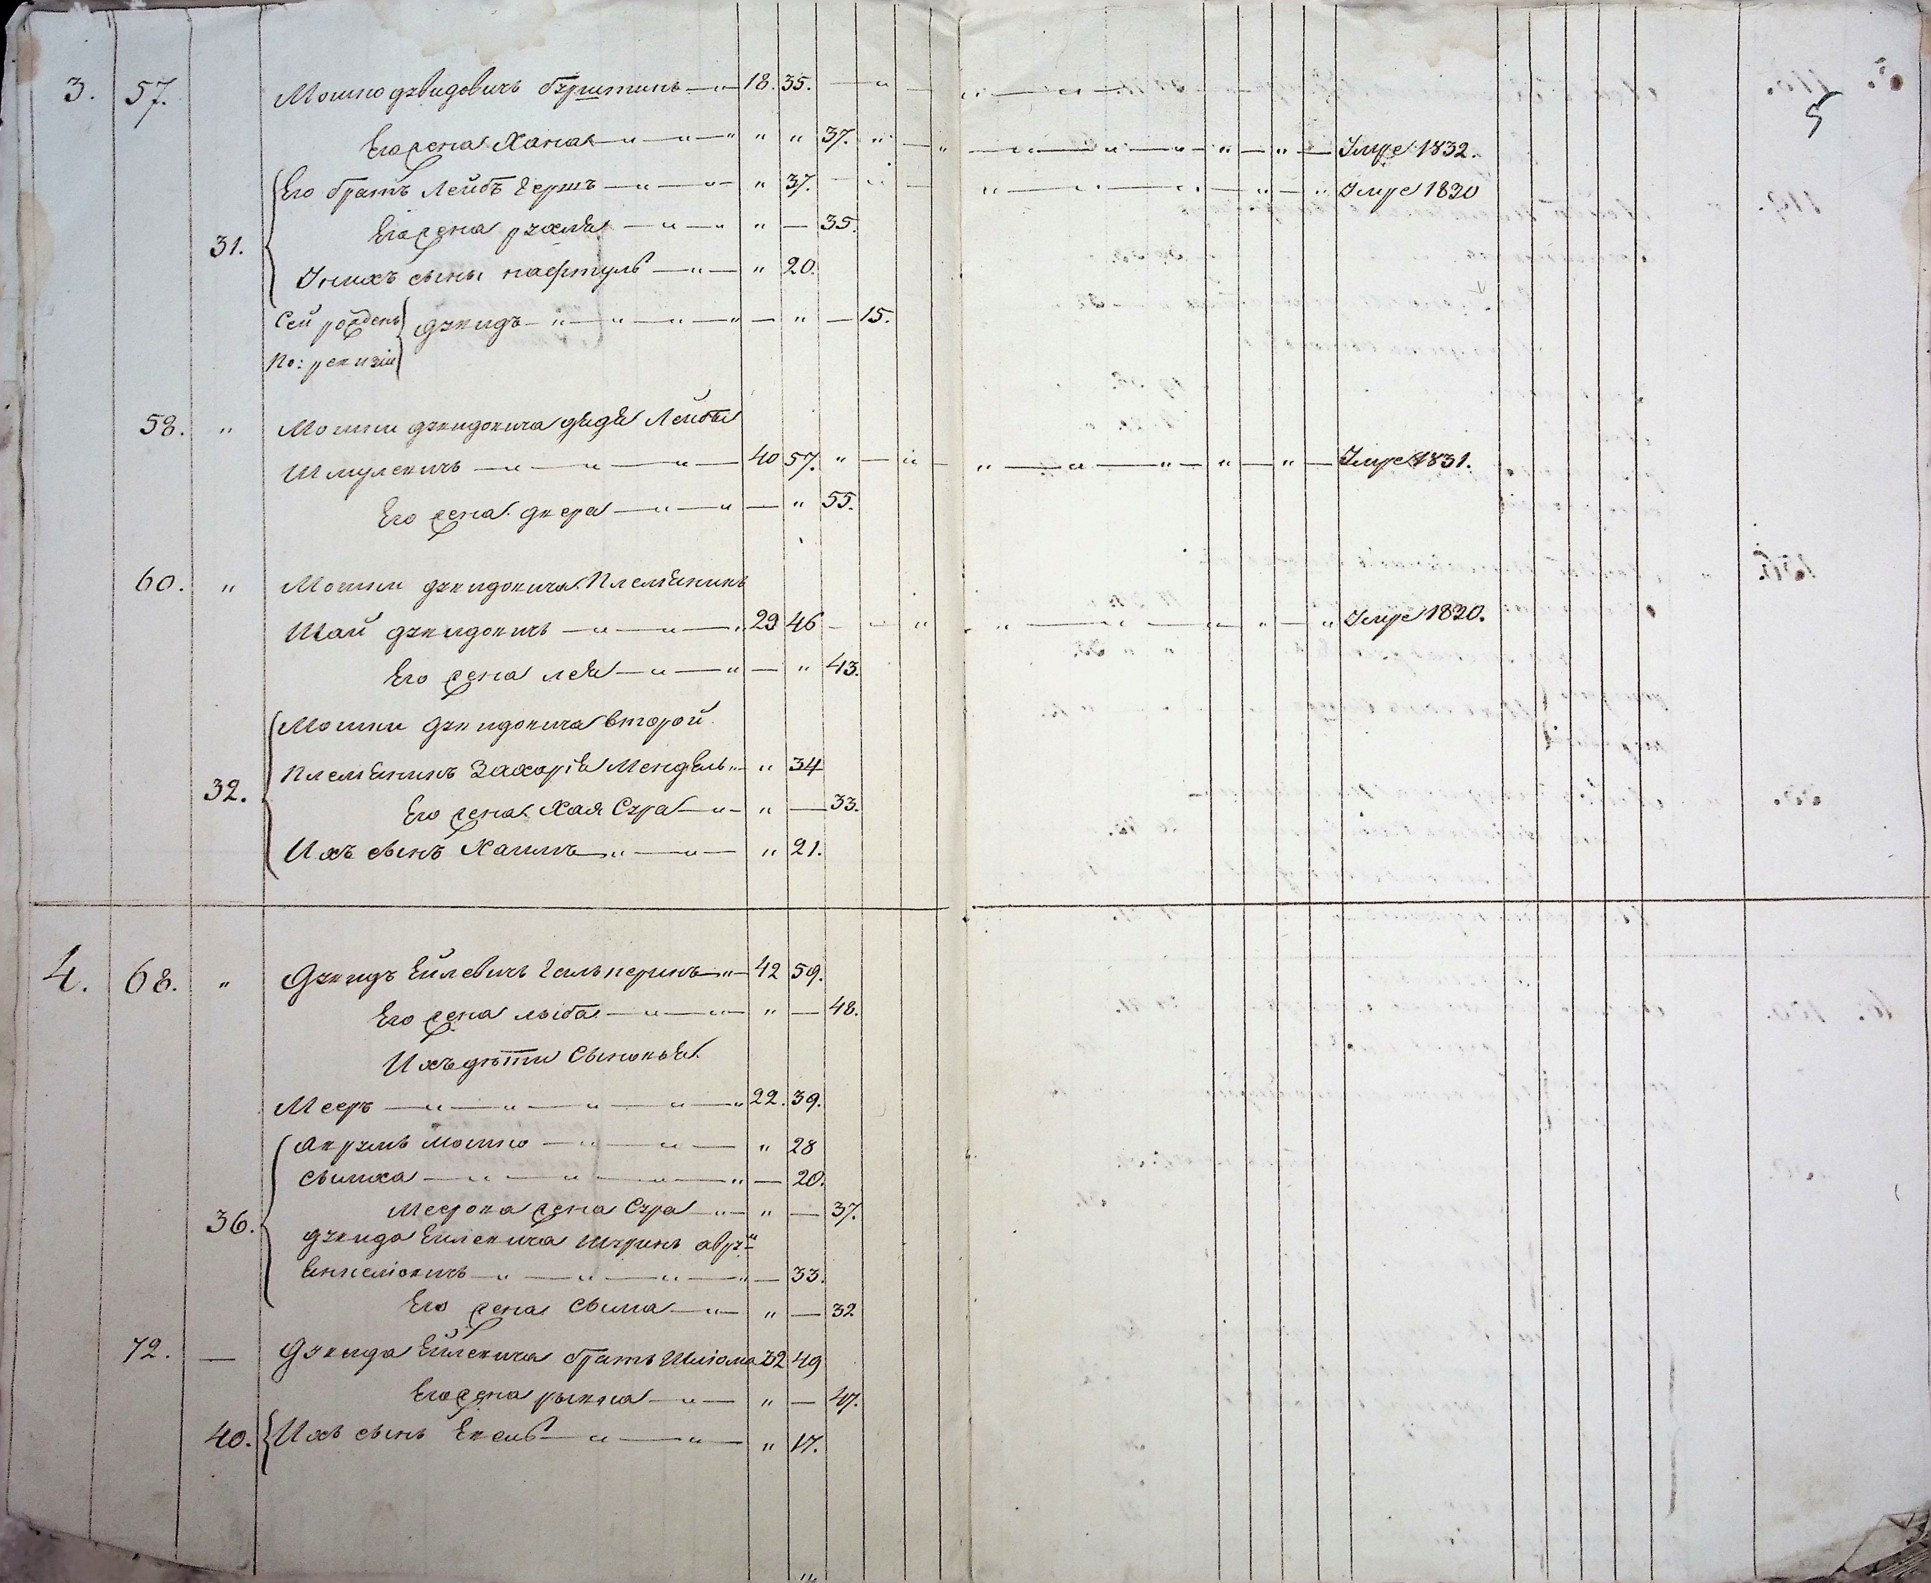 5
3. 57. Мошко дзвидовичъ бзриштинъ — „ — 18. 35. — „ —
Его жена Хана — „ — „ — „ „ „ 37. „ — „ — Умре 1832.
Его братъ Лейбъ Гершъ — „ — „ — „ 37. — „ — Умре 1830
31. Его жена рзхля — „ — „ „ — 35.
У нихъ сыны нафтуль — „ — „ 20.
Сей рожденъ дзвидъ — „ — „ — „ — „ — „ — 15.
по: ревизіи
58. „ Мошки дзвидовича дядя Лейбъ
Шмулевичъ — „ — „ — „ — 40 57. „ — „ — Умре 1831.
Его жена двера — „ — „ — „ 55.
60. „ Мошки дзвидовича Племяникъ
Шай дзвидовичъ — „ — „ — „ 29 46 — „ „ Умре 1830.
Его жена лея — „ — „ — „ 43.
Мошки дзвидовича второй
32. Племяникъ Захарія Мендель „ „ 34
Его жена Хая Сзра — „ — „ — 33.
Ихъ сынъ Хаимъ — „ — „ — „ 21.
4. 68. „ Дзвидъ Ейлевичъ Гальперинъ — „ — 42 59.
Его жена люба — „ — „ — „ — 48.
Ихъ дѣти сыновья
Мееръ — „ — „ — „ — „ — „ 22. 39.
аврзмъ мошко — „ — „ — „ 28
сымха — „ — „ — „ — „ — 20.
36. Меерова жена Сзра — „ — „ — 37.
дзвида Ейлевича шзринъ аврзмъ
— „ — „ — „ — „ — 33.
Его жена сыма — „ — „ — 32
72. — Дзвида Ейлевича братъ Шліома 32 49
Его жена рывка — „ — „ — 47.
40. Ихъ сынъ Екель — „ — „ — „ 17.